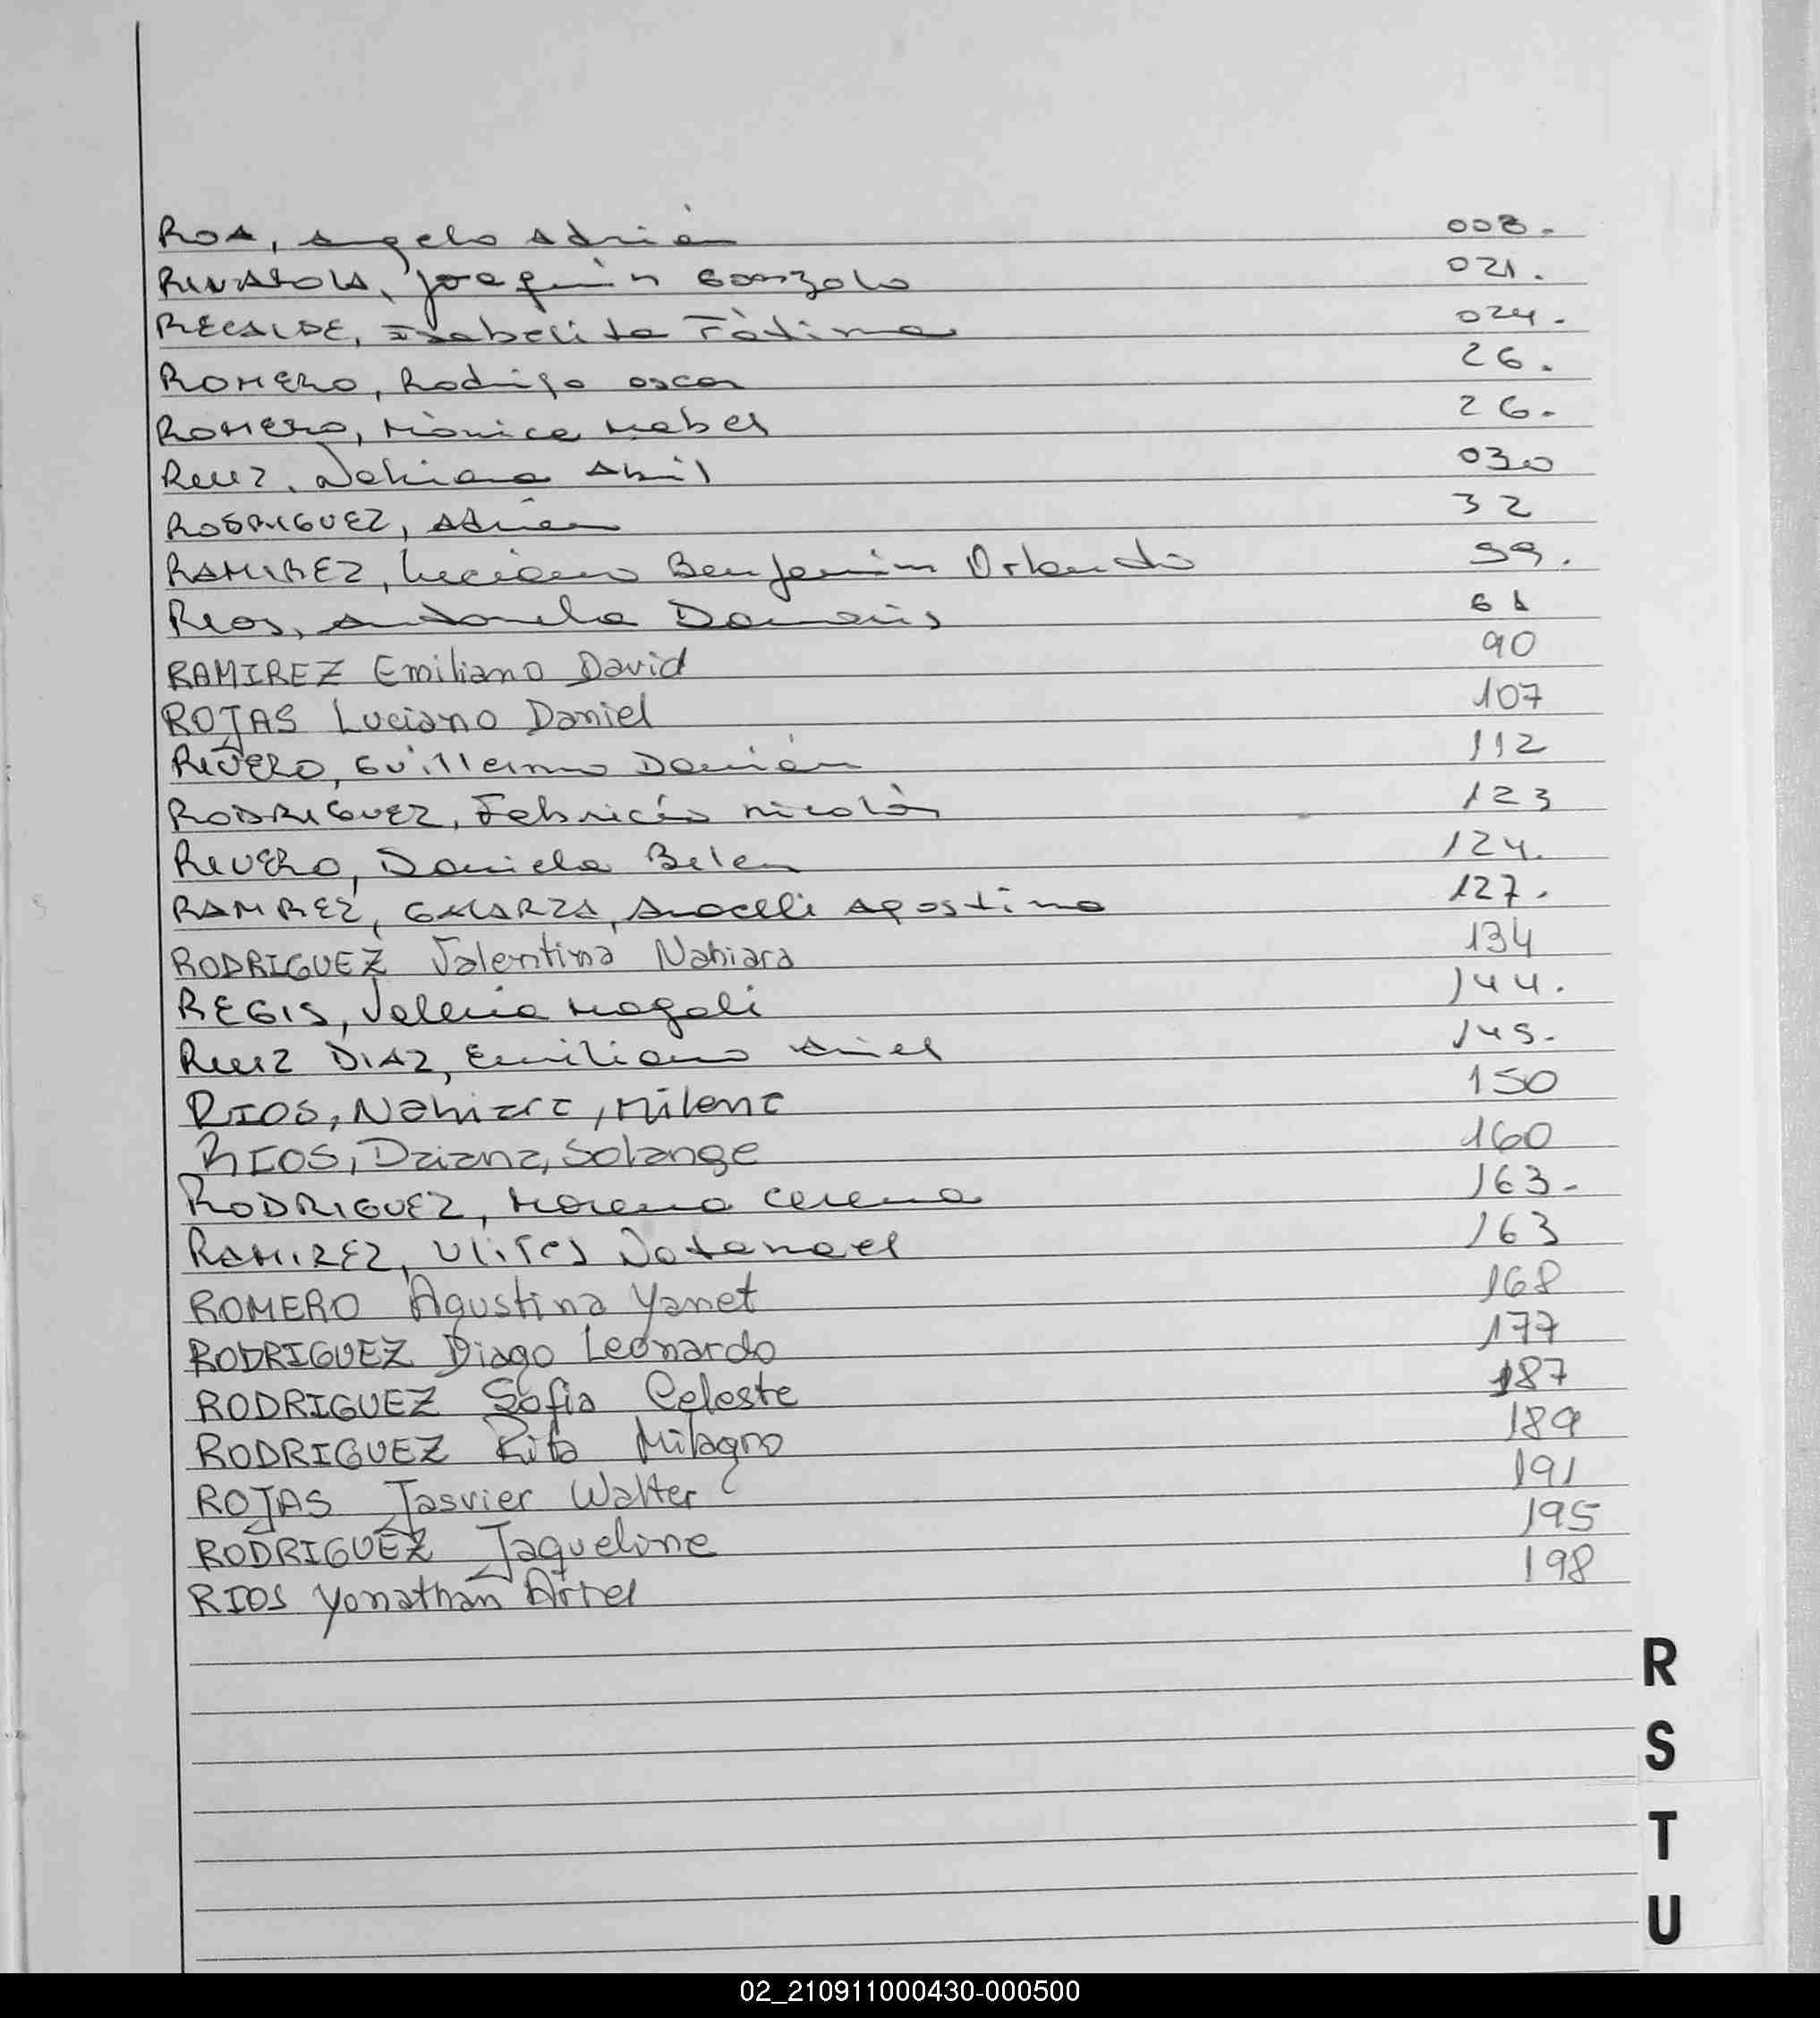 ROA, Angelo Adrián 008.
RINAROLA, Joaquín Gonzalo 021.
RECALDE, Isabelita Fàtima 024.
ROMERO, Rodrigo oscar 26.
ROMERO, Mònica Mabel 26.
Ruiz, Nahiara Abril 030
RODRIGUEZ, Adrián 32
RAMIREZ, Luciano Benjamín Orlando 59.
Rios, Antonela Damaris 61
RAMIREZ Emiliano David 90
ROJAS Luciano Daniel 107
RIVERO, Guillermo Damián 112
RODRIGUEZ, Fabricio nicolás 123
RIVERO, Daniela Belen 124.
RAMIREZ, GALARZA, Aracelli Agostina 127.
RODRIGUEZ Valentina Nahiara 134
REGIS, Valeria Magali 144.
Ruiz DIAZ, Emiliano Ariel 145.
RIOS, Nahiara, Milena 150
RIOS, Daiana, Solange 160
RODRIGUEZ, Morena 163.
RAMIREZ, Ulises Natanael 163
ROMERO Agustina Yanet 168
RODRIGUEZ Diago Leonardo 177
RODRIGUEZ Sofia Celeste 187
RODRIGUEZ Rita Milagro 189
ROJAS Jasvier Walter 191
RODRIGUEZ Jaqueline 195
RIOS Yonathan Ariel 198
R
S
T
U
02_210911000430-000500